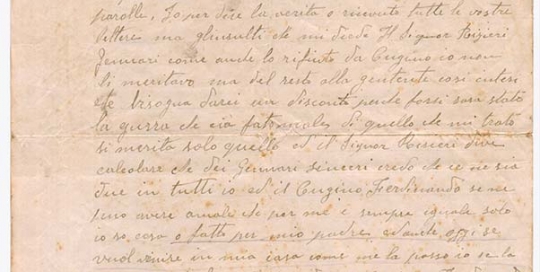 parolle, Io per dire la verita o ricevute tutte le vostre
lettere ma gl'insulti che mi diede Il Signor Risieri
Gennari come anche lo rifiuto da Cugino io non
li meritavo ma del resto alla gente cosi
bisogna darci un disconto perche forsi sara stato
la guerra che cia fato male, di quello che mi trato
si merita solo quello ed il Signor Risieri deve
calcolare che dei Gennari sinceri credo che ce ne sia
due in tutti io ed il Cugino Ferdinando se ne
sono avere amali che per me è sempre iguale solo
io so, cosa o fatto per mio padre ed anche oggi se
vuol venire in mia casa come me la passo io se la